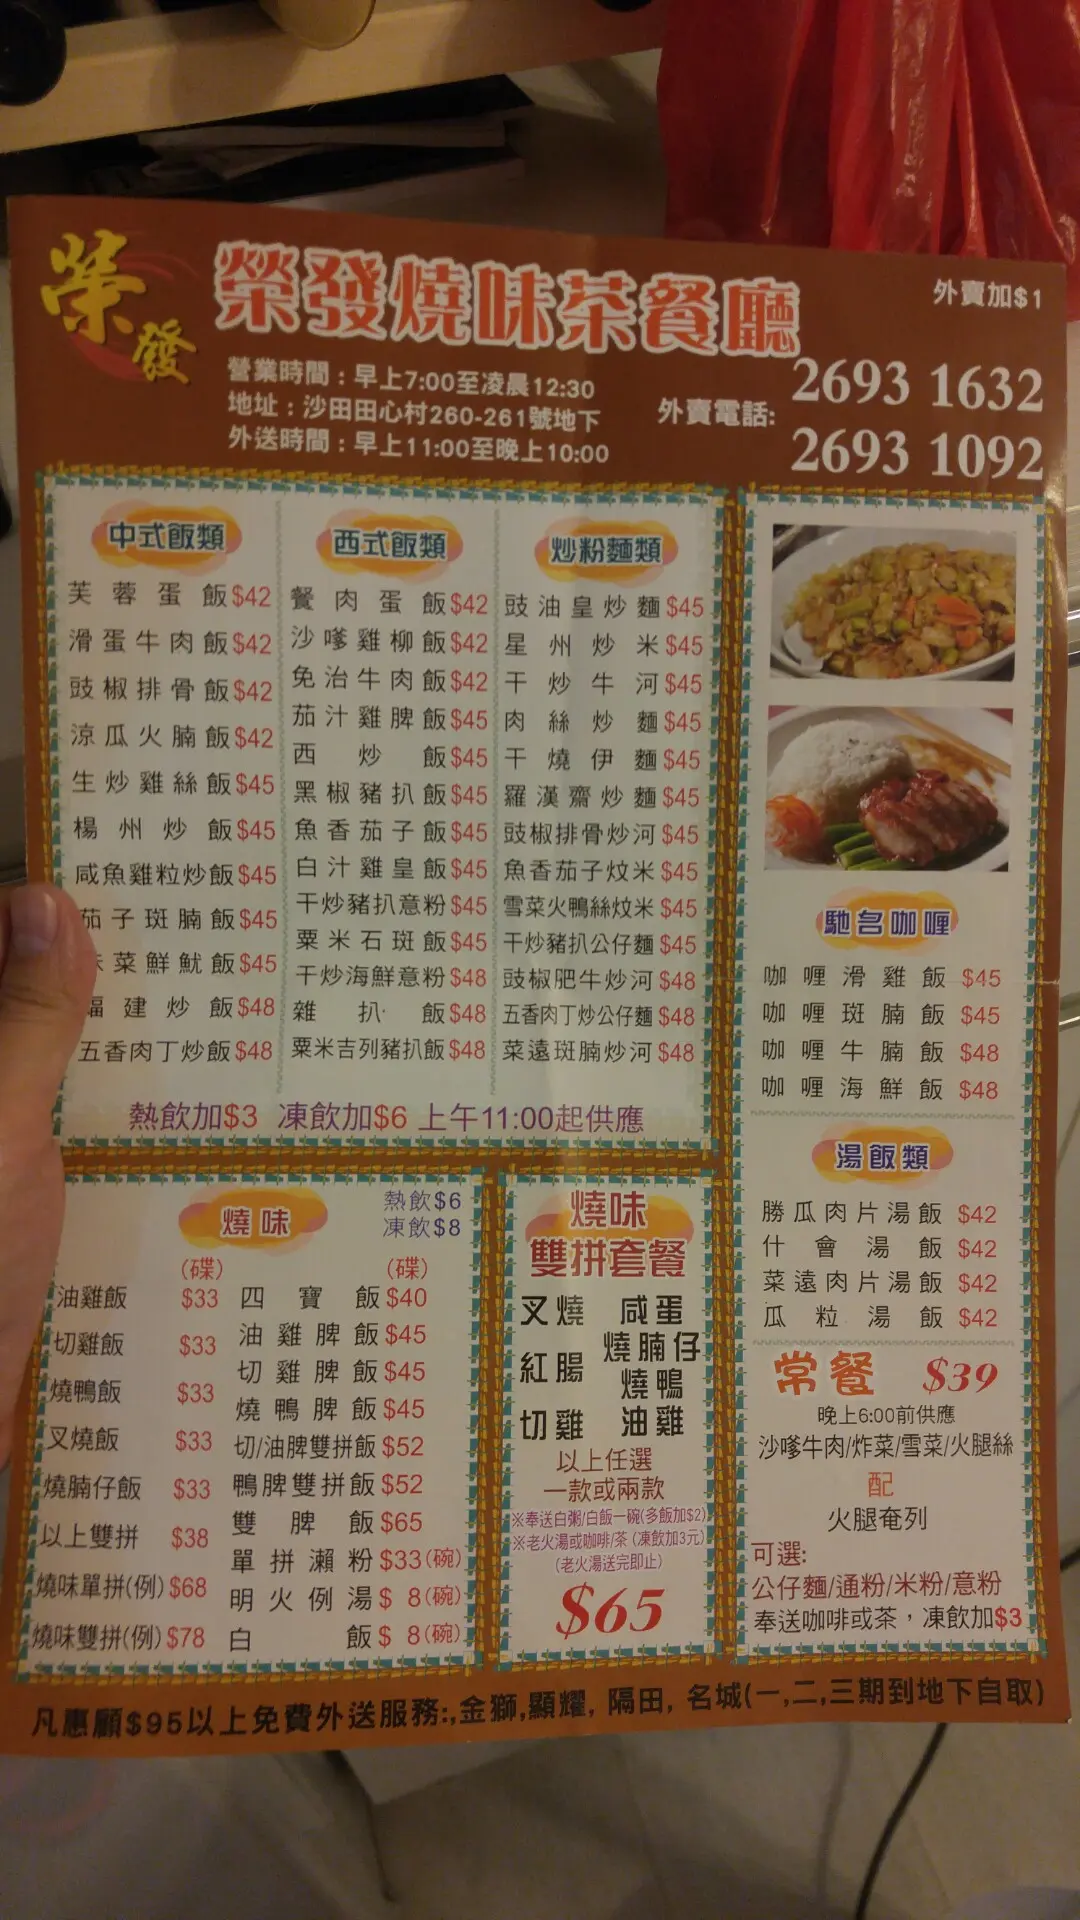 榮發
榮發燒味茶餐廳
外賣加$1
營業時間：早上7:00至凌晨12:30
地址：沙田田心村260-261號地下
外送時間：早上11:00至晚上10:00
外賣電話:
2693 1632
2693 1092
中式飯類
芙蓉蛋飯$42
滑蛋牛肉飯$42
豉椒排骨飯$42
涼瓜火腩飯$42
生炒雞絲飯$45
楊州炒飯$45
咸魚雞粒炒飯$45
茄子斑腩飯$45
菜鮮魷飯$45
建炒飯$48
五香肉丁炒飯$48
西式飯類
餐肉蛋飯$42
沙嗲雞柳飯$42
免治牛肉飯$42
茄汁雞脾飯$45
西炒飯$45
黑椒豬扒飯$45
魚香茄子飯$45
白汁雞皇飯$45
干炒豬扒意粉$45
粟米石斑飯$45
干炒海鮮意粉$48
雜扒飯$48
粟米吉列豬扒飯$48
炒粉麵類
豉油皇炒麵$45
星州炒米$45
干炒牛河$45
肉絲炒麵$45
干燒伊麵$45
羅漢齋炒麵$45
豉椒排骨炒河$45
魚香茄子炆米$45
雪菜火鴨絲炆米$45
干炒豬扒公仔麵$45
豉椒肥牛炒河$48
五香肉丁炒公仔麵$48
菜遠斑腩炒河$48
熱飲加$3 凍飲加$6 上午11:00起供應
馳名咖喱
咖喱滑雞飯 $45
咖喱斑腩飯 $45
咖喱牛腩飯 $48
咖喱海鮮飯 $48
湯飯類
勝瓜肉片湯飯 $42
什會湯飯 $42
菜遠肉片湯飯 $42
瓜粒湯飯 $42
常餐 $39
晚上6:00前供應
沙嗲牛肉/炸菜/雪菜/火腿絲
配
火腿奄列
可選:
公仔麵/通粉/米粉/意粉
奉送咖啡或茶，凍飲加$3
燒味
熱飲$6
凍飲$8
(碟)
油雞飯 $33
切雞飯 $33
燒鴨飯 $33
叉燒飯 $33
燒腩仔飯 $33
以上雙拼 $38
燒味單拼(例) $68
燒味雙拼(例) $78
(碟)
四寶飯 $40
油雞脾飯 $45
切雞脾飯 $45
燒鴨脾飯 $45
切/油脾雙拼飯 $52
鴨脾雙拼飯 $52
雙脾飯 $65
單拼瀨粉 $33(碗)
明火例湯 $ 8(碗)
白飯 $ 8(碗)
燒味
雙拼套餐
叉燒 咸蛋
燒腩仔
紅腸 燒鴨
切雞 油雞
以上任選
一款或兩款
※奉送白粥/白飯一碗(多飯加$2)
※老火湯或咖啡/茶 (凍飲加3元)
(老火湯送完即止)
$65
凡惠顧$95以上免費外送服務:,金獅,顯耀, 隔田, 名城(一,二,三期到地下自取)